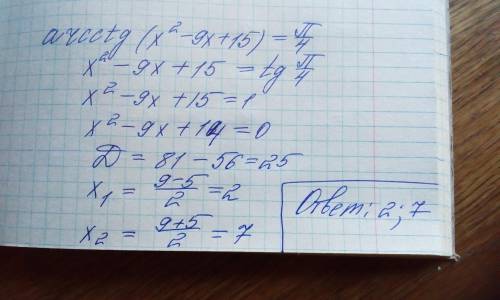 arcctg (x² - 9x + 15) = π/4
x² - 9x + 15 = tg π/4
x² - 9x + 15 = 1
x² - 9x + 14 = 0
D = 81 - 56 = 25
x₁ = (9-5)/2 = 2
x₂ = (9+5)/2 = 7
Ответ: 2; 7